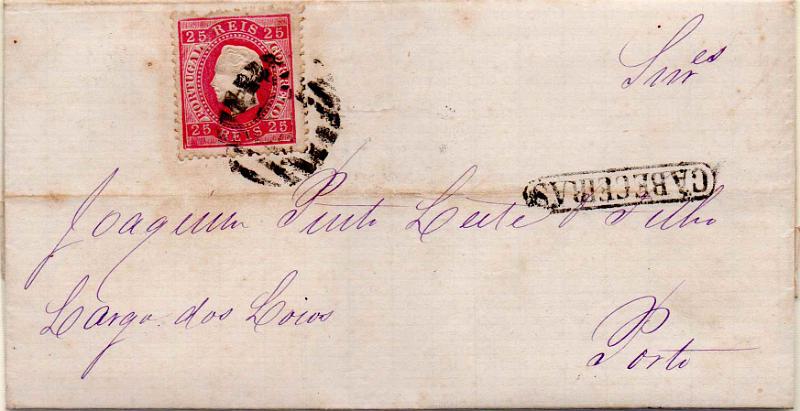 25 REIS 25
PORTUGAL CORREIO
25 REIS 25
Snr es
CABECEIRAS
Joaquim Pinto Leite & Filho
Largo dos Loios
Porto